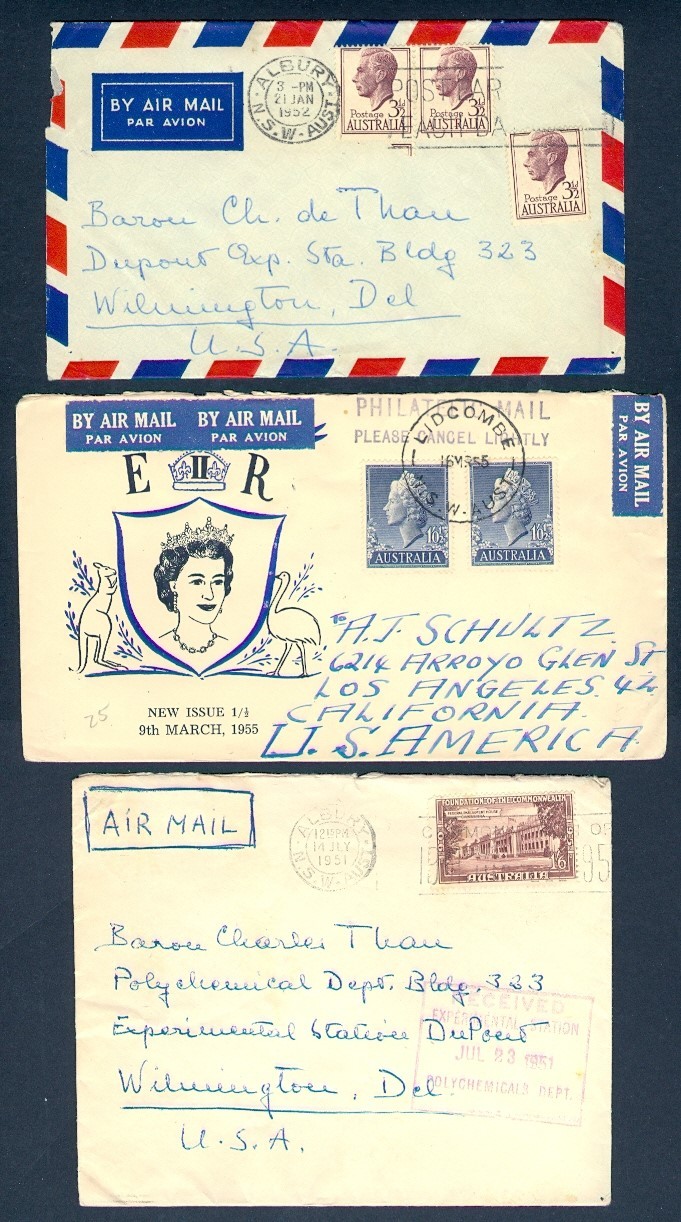 BY AIR MAIL
PAR AVION
ALBURY
3 -PM
21 JAN
1952
N.S.W-AUST
Postage 3½d
AUSTRALIA
Postage 3½d
AUSTRALIA
POST
EAR
EA
DA
Postage 3½d
AUSTRALIA
Baron Ch. de Than
Dupont Exp. Sta. Bldg 323
Wilmington, Del
U.S.A.
BY AIR MAIL
PAR AVION
BY AIR MAIL
PAR AVION
PHILATELIC MAIL
PLEASE CANCEL LIGHTLY
LIDCOMBE
N.S.W-AUST
BY AIR MAIL
PAR AVION
E II R
1/0½
AUSTRALIA
1/0½
AUSTRALIA
NEW ISSUE 1/½
9th MARCH, 1955
25
To A.J. SCHULTZ
6214 ARROYO GLEN ST
LOS ANGELES 42
CALIFORNIA
U.S. AMERICA
AIR MAIL
ALBURY
12 15 PM
14 JLY
1951
N.S.W-AUST
FOUNDATION OF THE COMMONWEALTH
FEDERAL PARLIAMENT HOUSE
CANBERRA
1/6
AUSTRALIA
Baron Charles Than
Polychemical Dept. Bldg. 323
Experimental Station DuPont
Wilmington, Del.
U.S.A.
RECEIVED
EXPERIMENTAL STATION
JUL 23 1951
POLYCHEMICALS DEPT.